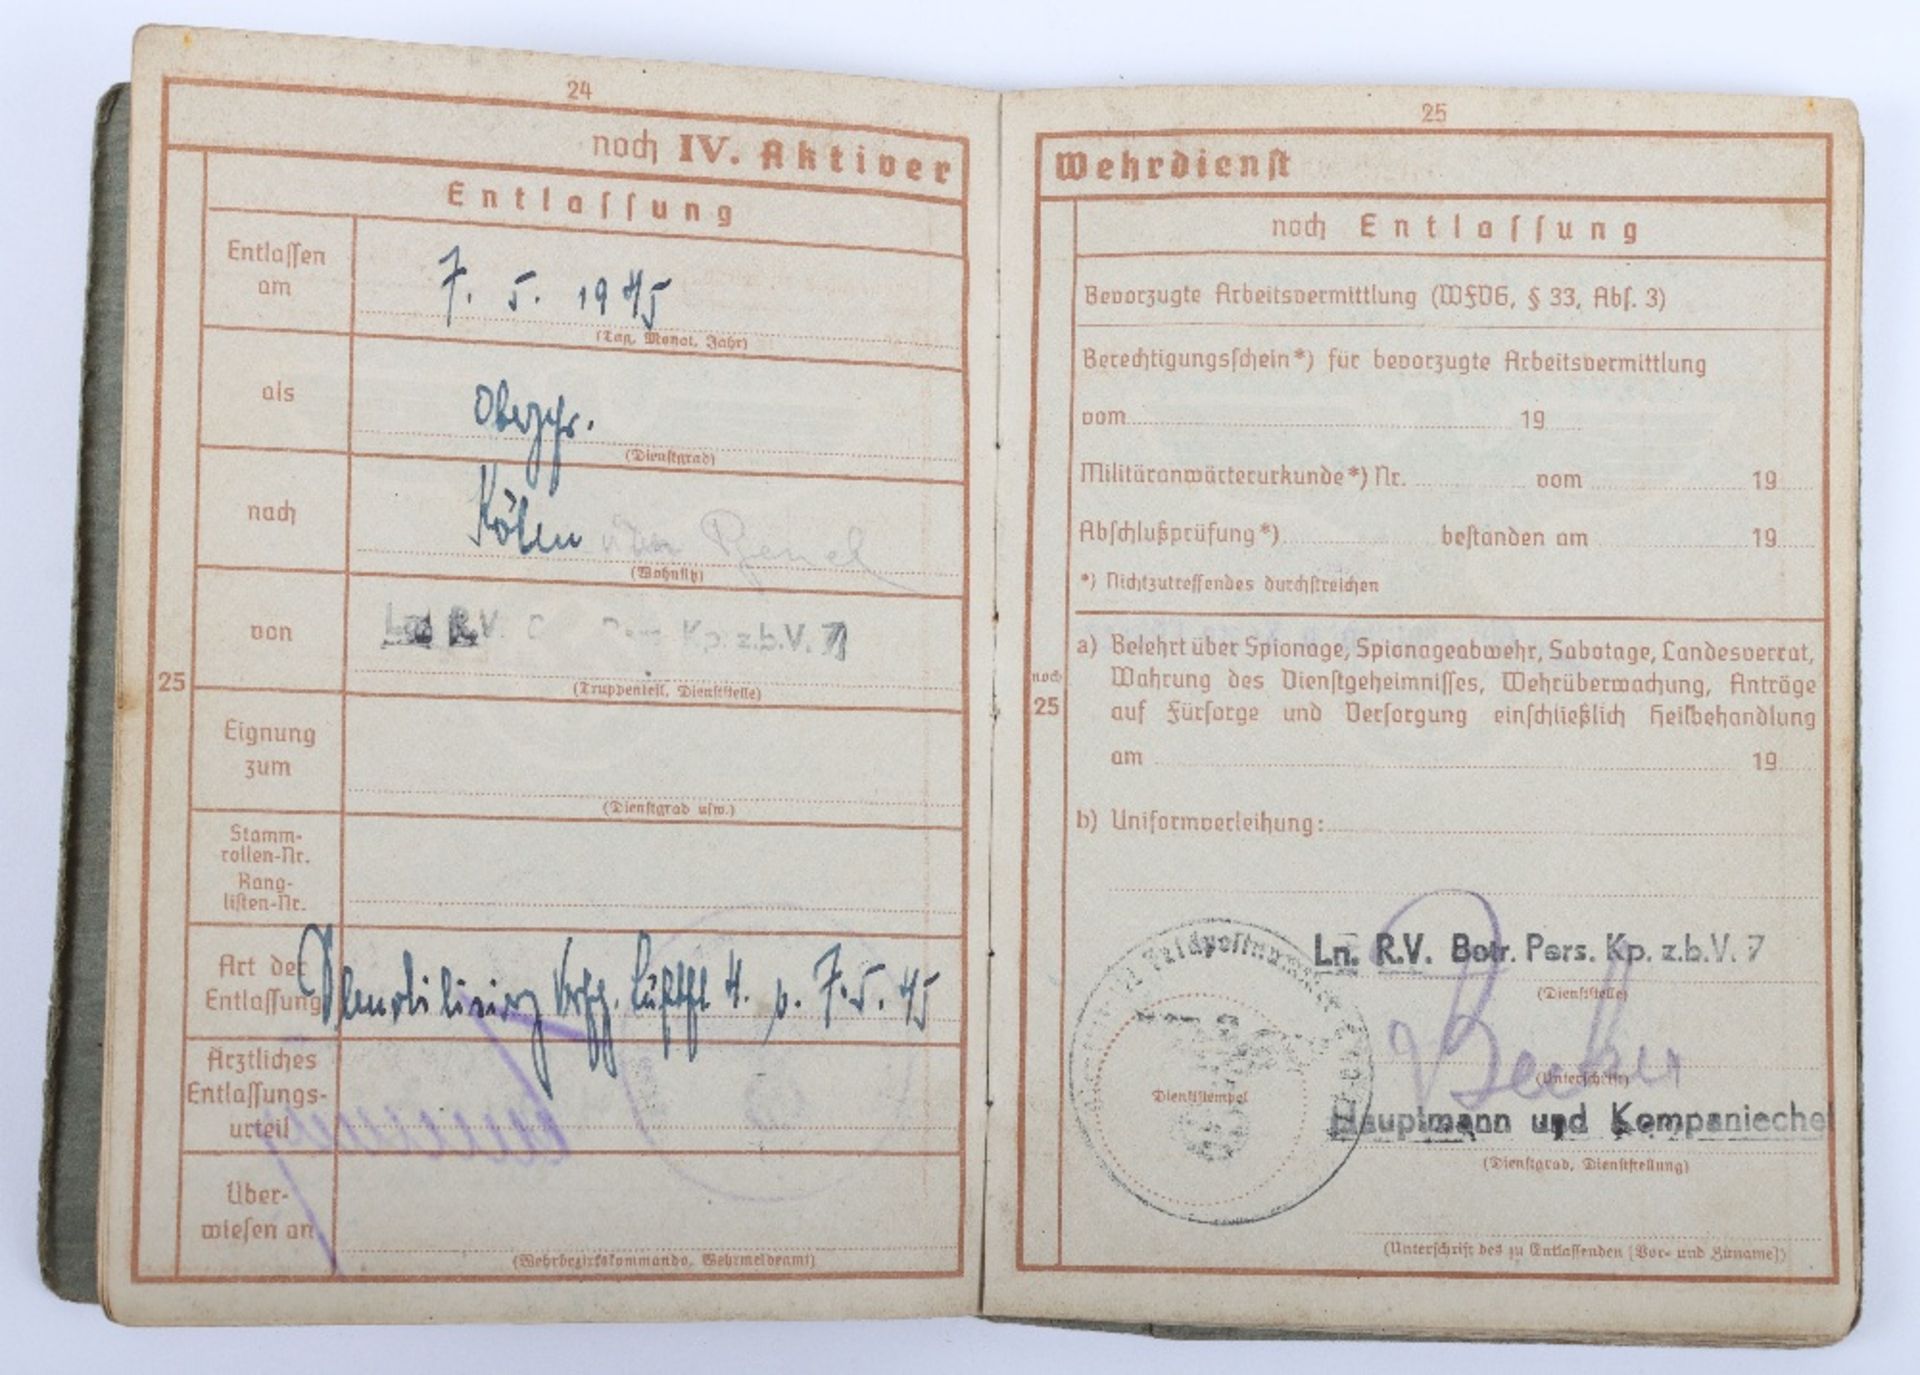 24
noch IV. Aktiver
Entlassung
Entlassen
am
7. 5. 1945
(Tag, Monat, Jahr)
als
Obergefr.
(Dienstgrad)
nach
Köln
(Wohnsitz)
von
Ln. R.V. Pers. Kp. z.b.V. 7
(Truppenteil, Dienststelle)
25
Eignung
zum
(Dienstgrad usw.)
Stamm-
rollen-Nr.
Rang-
listen-Nr.
Art der
Entlassung
7. 5. 45
Ärztliches
Entlassungs-
urteil
Über-
wiesen an
(Wehrbezirkskommando, Wehrmeldeamt)
25
Wehrdienst
noch Entlassung
Bevorzugte Arbeitsvermittlung (WFVG, § 33, Abs. 3)
Berechtigungsschein*) für bevorzugte Arbeitsvermittlung
vom 19
Militäranwärterurkunde*) Nr. vom 19
Abschlußprüfung*) bestanden am 19
*) Nichtzutreffendes durchstreichen
noch
25
a) Belehrt über Spionage, Spionageabwehr, Sabotage, Landesverrat,
Wahrung des Dienstgeheimnisses, Wehrüberwachung, Anträge
auf Fürsorge und Versorgung einschließlich Heilbehandlung
am 19
b) Uniformverleihung:
Feldpostnummer
Ln. R.V. Betr. Pers. Kp. z.b.V. 7
(Dienststelle)
Becker
(Unterschrift)
Dienststempel
Hauptmann und Kompaniechef
(Dienstgrad, Dienststellung)
(Unterschrift des zu Entlassenden [Vor- und Zuname])